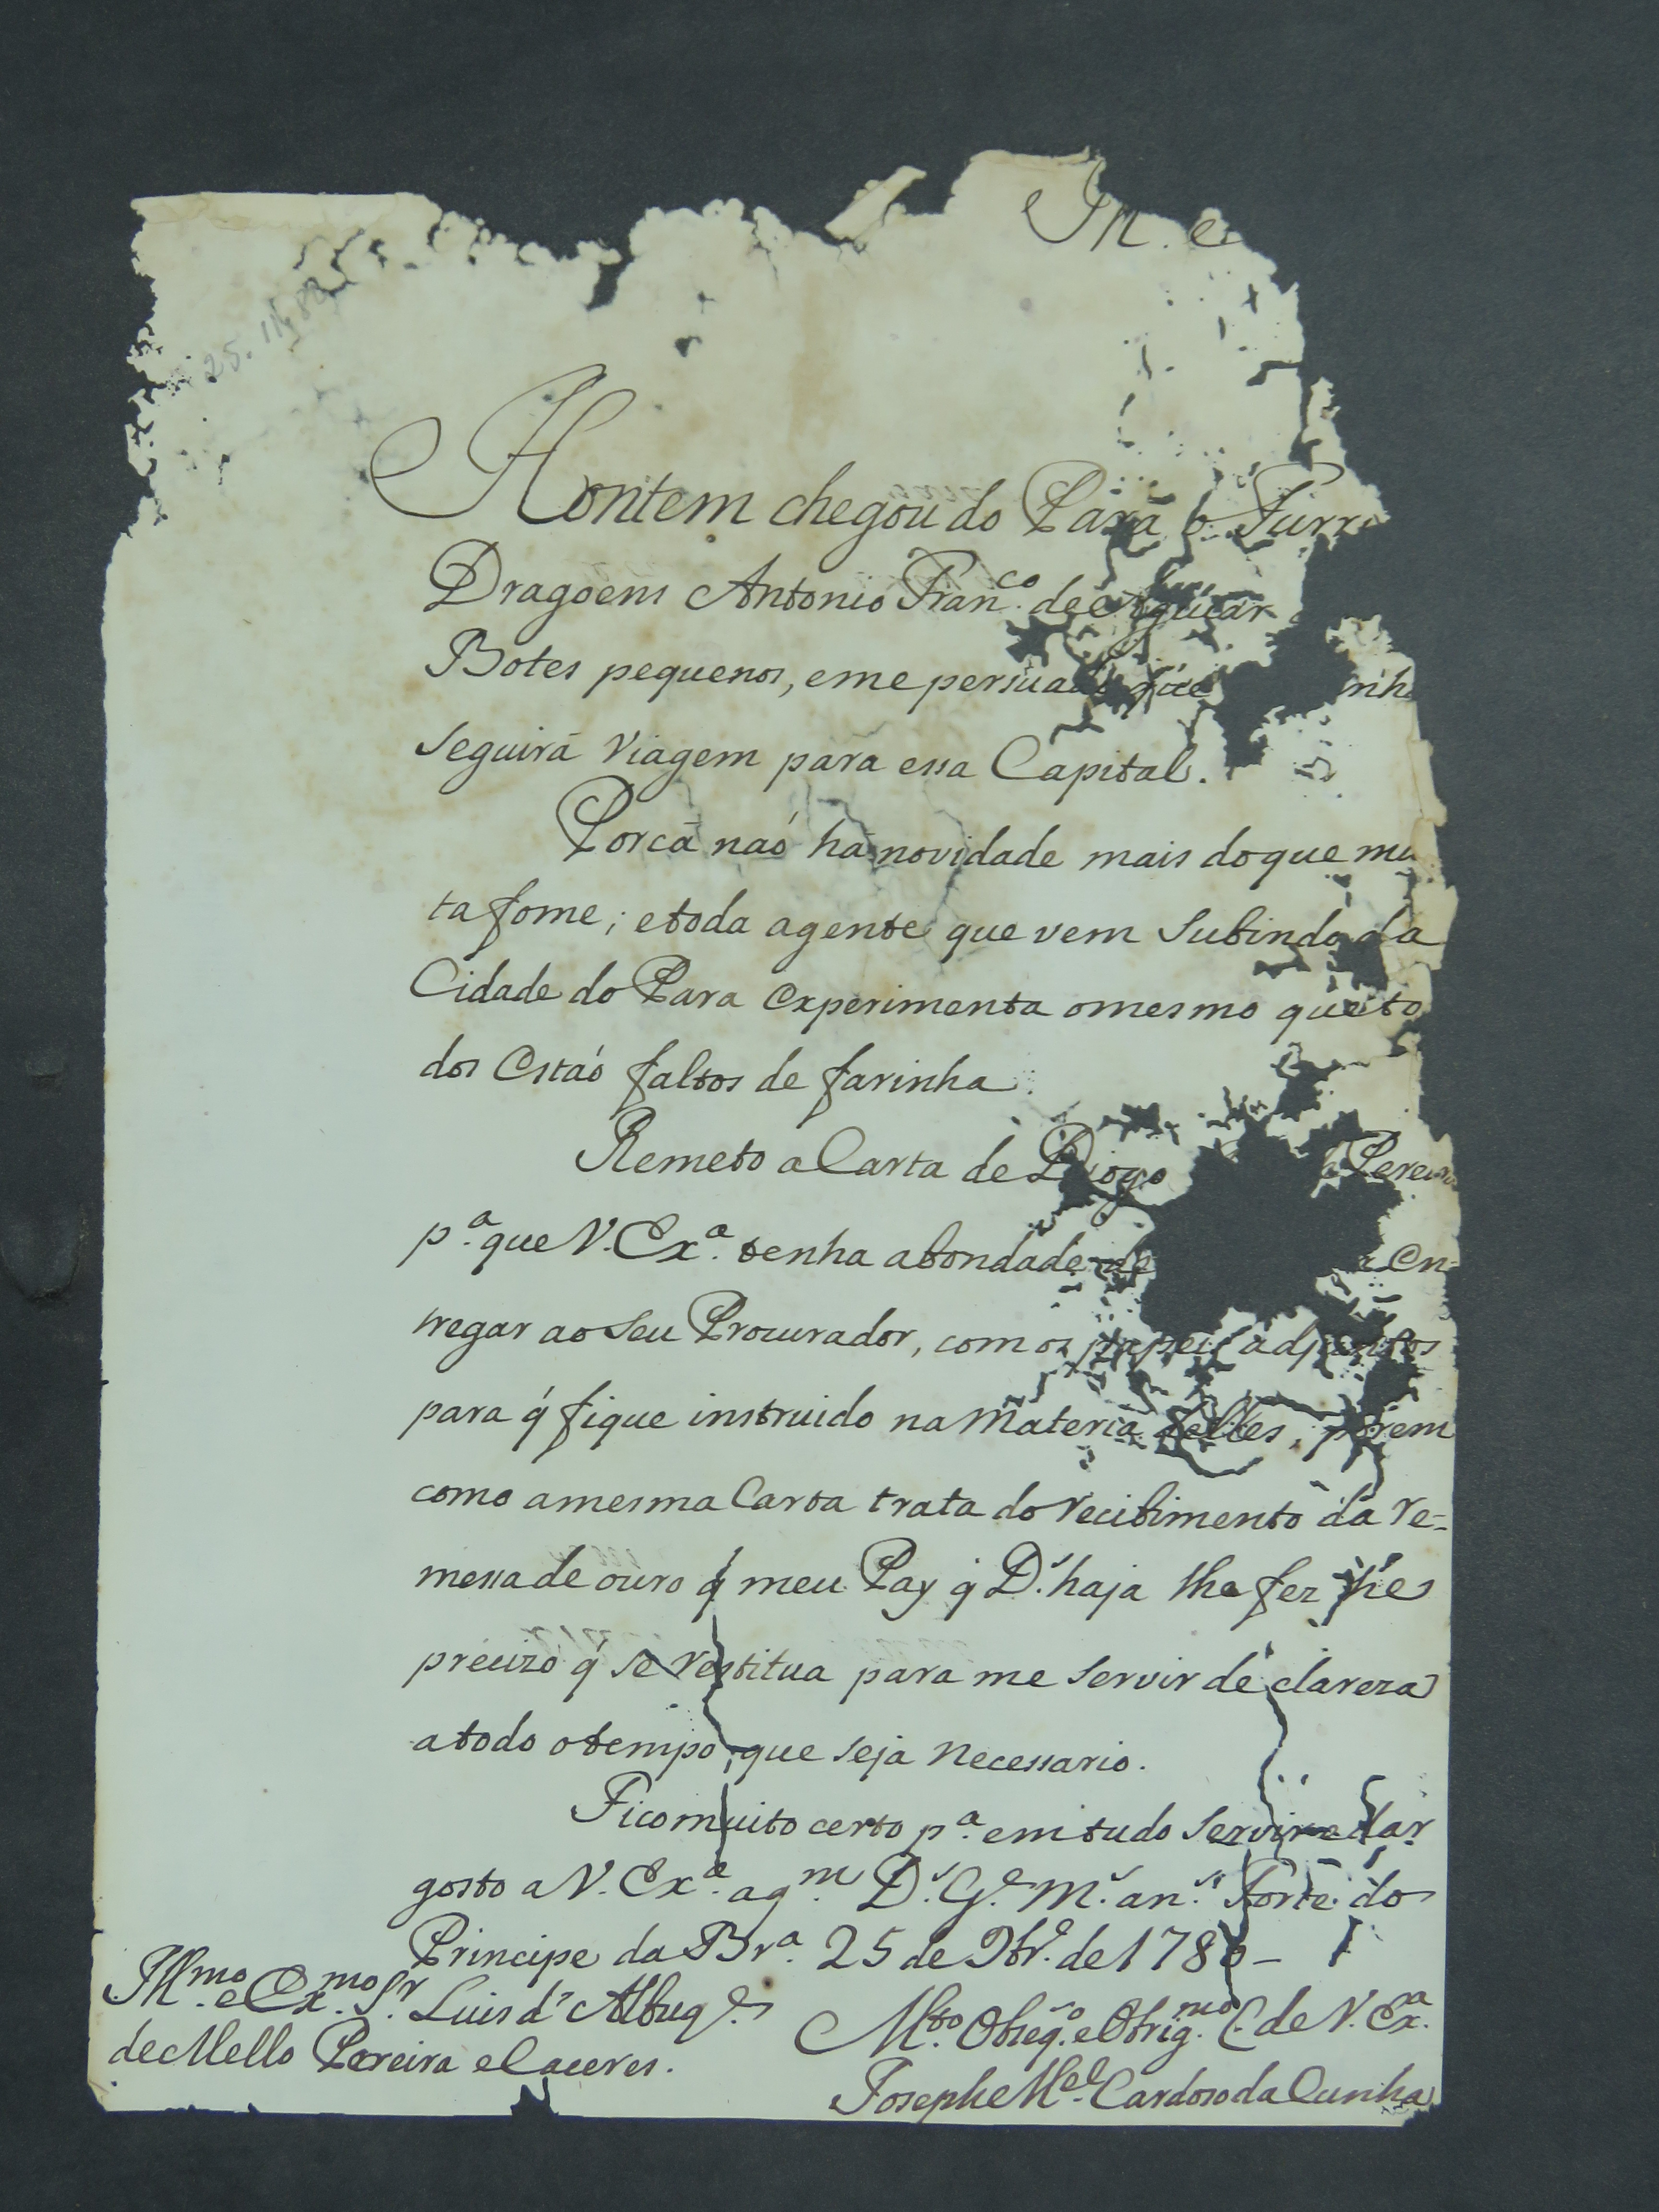 Ill. e
25.11.
Hontem chegou do Parâ o Furri
Dragoens Antonio Fran.co de Aguiar
Botes pequenos, eme persuado que nha
Seguirâ Viagem para essa Capital.
Porcâ naó hâ novidade mais doque mu
ta fome; etoda agente que vem Subindo da
Cidade do Para experimenta omesmo que to
dos Estaó faltos de farinha.
Remeto a Carta de Diogo Pereira
p.a que V. Ex.a tenha abondade de En-
tregar ao Seu Procurador, com os papeis adjuntos
para q' fique instruido na Materia delles, porem
como amesma Carta trata do Recibimento da Re=
messa de ouro q' meu Pay q' D.s haja lhe fez he
precizo q' se Restitua para me Servir de clareza
atodo otempo, que Seja Necessario.
Fico muito certo p.a em tudo Servir e dar
gosto a V. Ex.a aq.m D.s G.e m.s an.s Forte do
Principe da Br.a 25 de 9br.o de 1780 -
Ill.mo e Ex.mo S.r Luis d' Albuq.e
de Mello Pereira e Caceres.
M.to Obseq.o e Obrig.mo C. de V. Ex.a
Joseph M.el Cardoso da Cunha